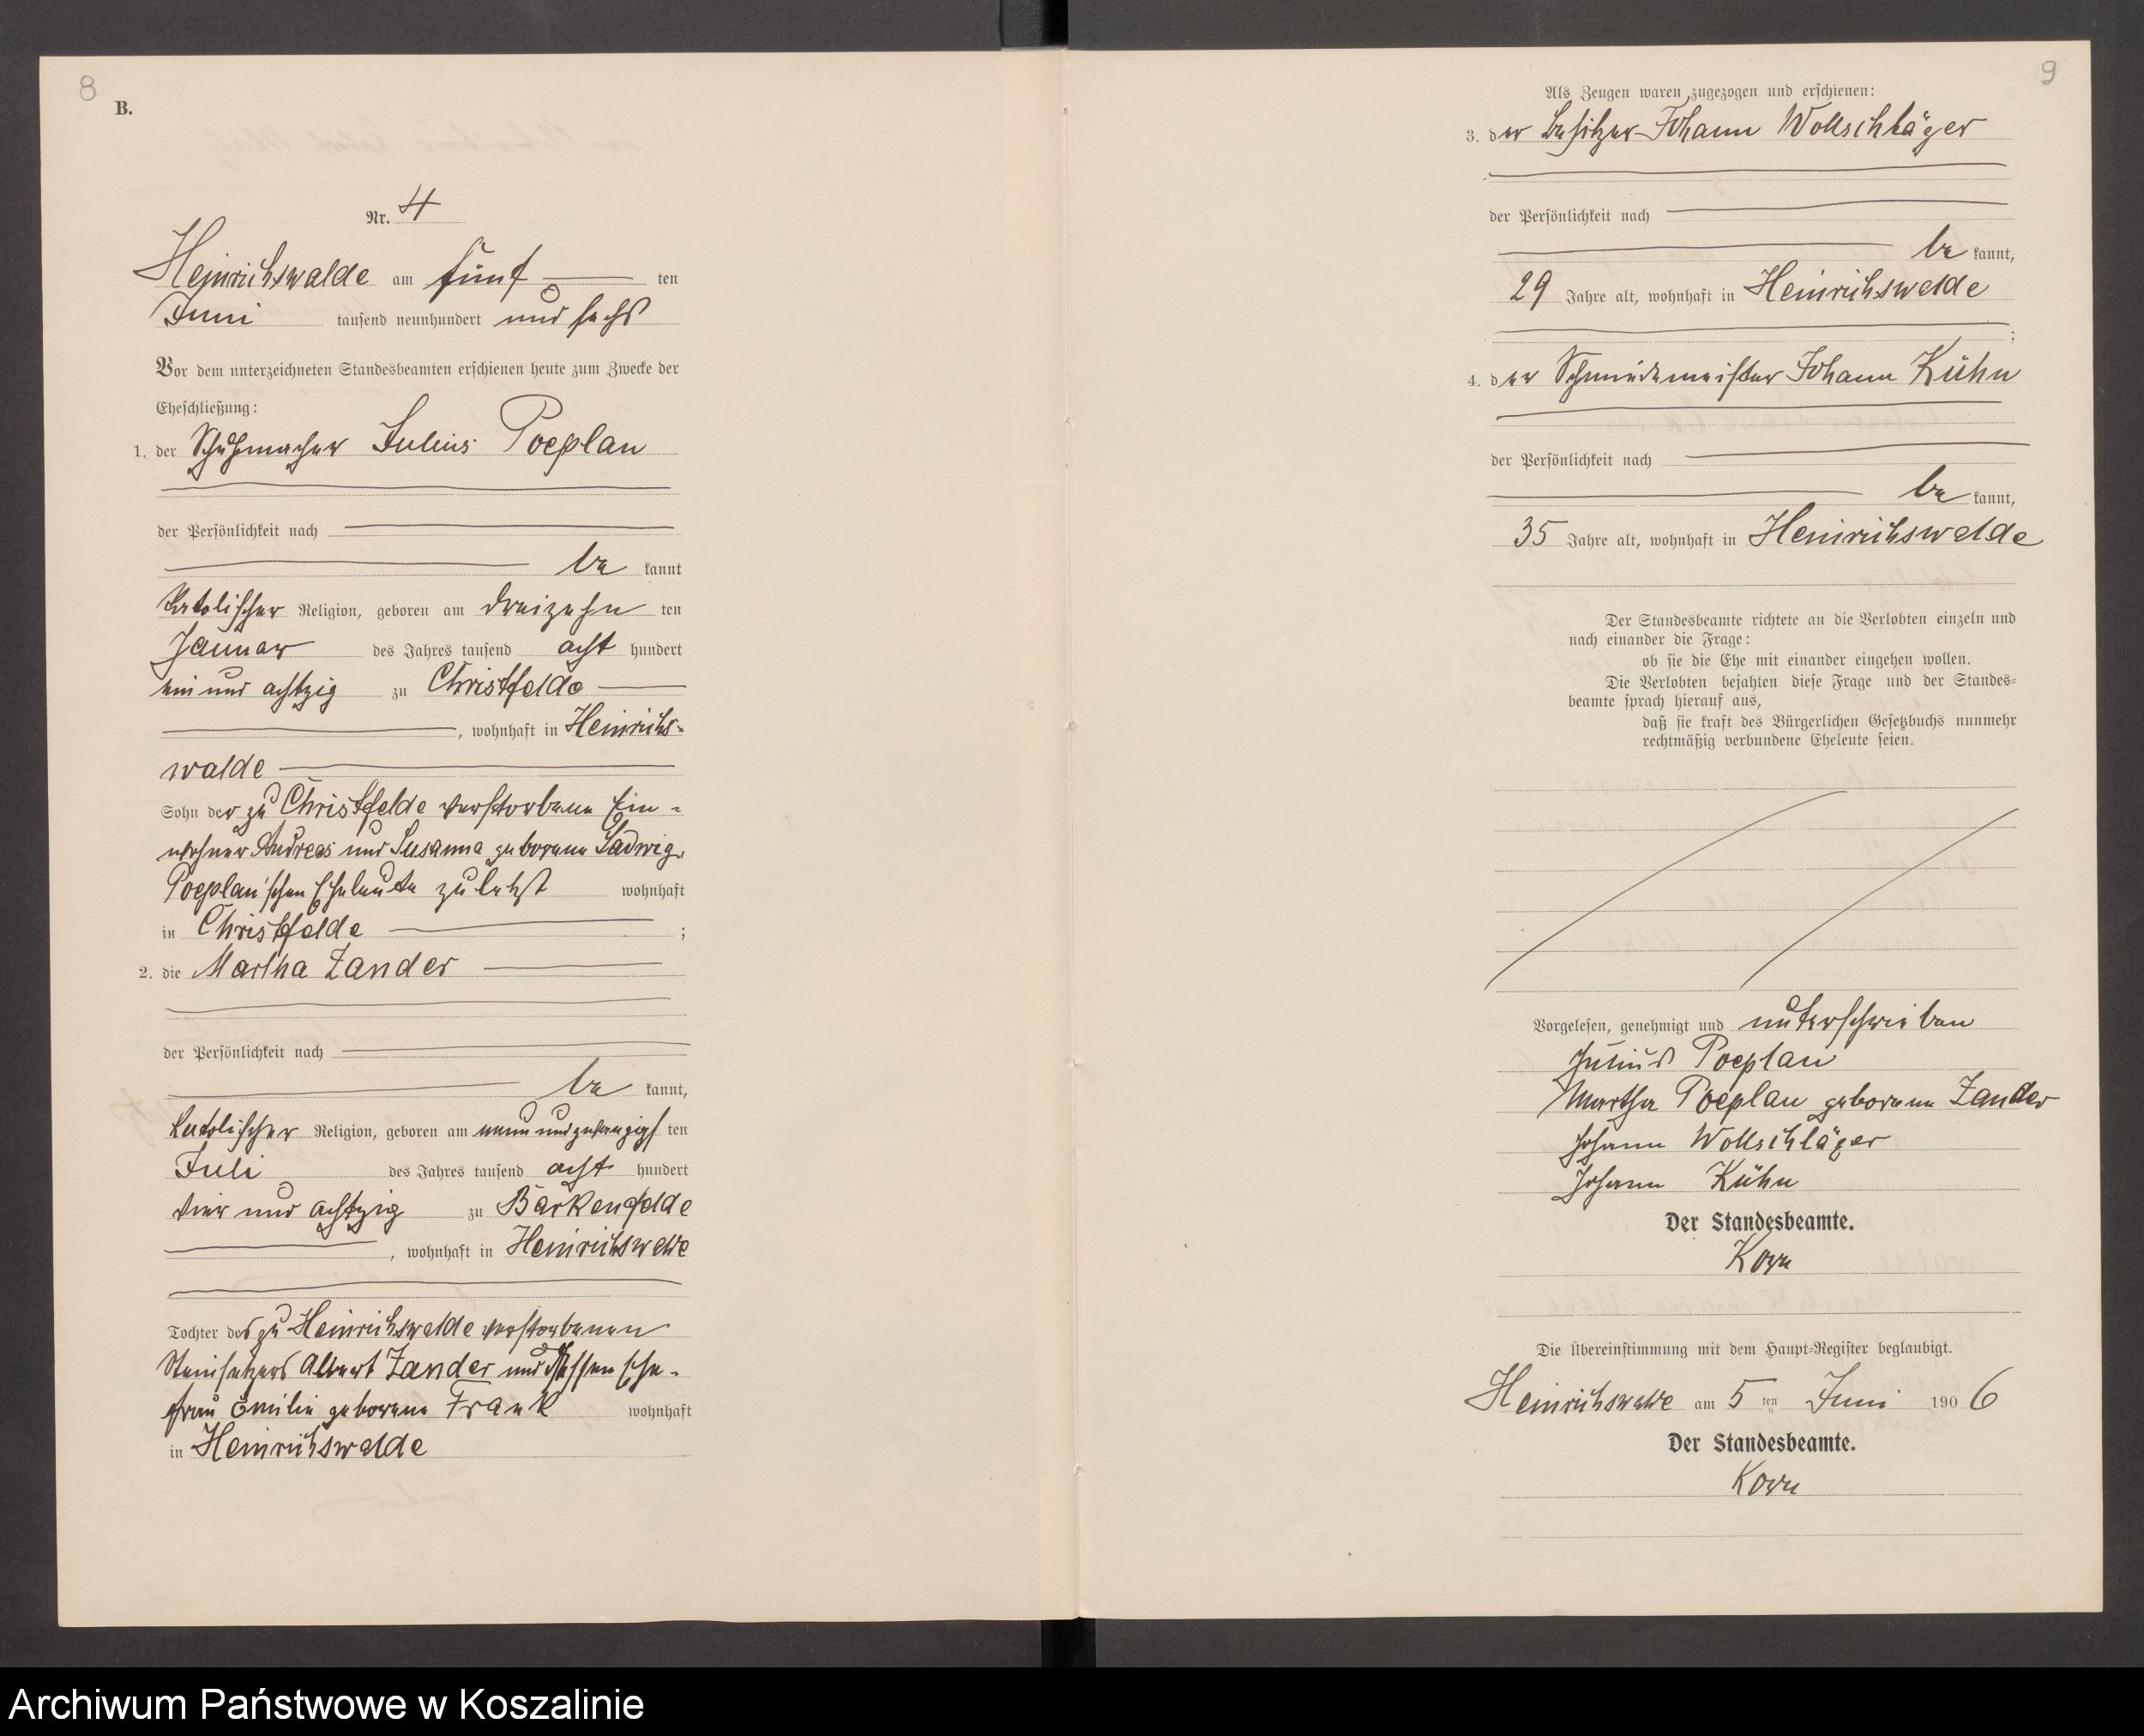 8
B.
Nr. 4
Heinrichswalde am fünf ten
Juni tausend neunhundert und sechs
Vor dem unterzeichneten Standesbeamten erschienen heute zum Zwecke der
Eheschließung:
1. der Schuhmacher Julius Poeplau
der Persönlichkeit nach
be kannt
katolischer Religion, geboren am dreizehn ten
Januar des Jahres tausend acht hundert
ein und achtzig zu Christfelde
, wohnhaft in Heinrichs-
walde
Sohn der zu Christfelde verstorbene Ein-
wohner Andreas und Susanna geborene Ladwig,
Poeplau'schen Eheleute zuletzt wohnhaft
in Christfelde ;
2. die Martha Zander
der Persönlichkeit nach
be kannt,
katolischer Religion, geboren am neunundzwanzigs ten
Juli des Jahres tausend acht hundert
vier und achtzig zu Barkenfelde
, wohnhaft in Heinrichswalde
Tochter des zu Heinrichswalde verstorbenen
Steinsetzers Albert Zander und dessen Ehe-
frau Emilie geborene Frank wohnhaft
in Heinrichswalde
9
Als Zeugen waren zugezogen und erschienen:
3. der Besitzer Johann Wollschläger
der Persönlichkeit nach
be kannt,
29 Jahre alt, wohnhaft in Heinrichswalde
;
4. der Schmiedemeister Johann Kühn
der Persönlichkeit nach
be kannt,
35 Jahre alt, wohnhaft in Heinrichswalde
Der Standesbeamte richtete an die Verlobten einzeln und
nach einander die Frage:
ob sie die Ehe mit einander eingehen wollen.
Die Verlobten bejahten diese Frage und der Standes-
beamte sprach hierauf aus,
daß sie kraft des Bürgerlichen Gesetzbuchs nunmehr
rechtmäßig verbundene Eheleute seien.
Vorgelesen, genehmigt und unterschrieben
Julius Poeplau
Martha Poeplau geborene Zander
Johann Wollschläger
Johann Kühn
Der Standesbeamte.
Korn
Die Übereinstimmung mit dem Haupt-Register beglaubigt.
Heinrichswalde am 5 ten Juni 190 6
Der Standesbeamte.
Korn
Archiwum Państwowe w Koszalinie